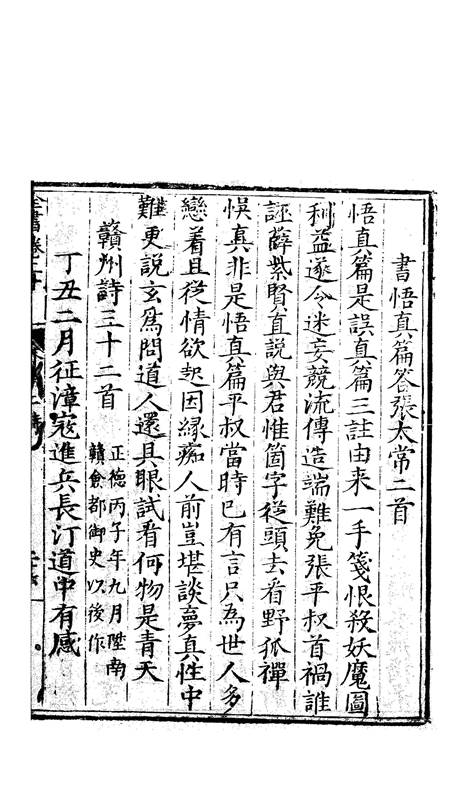 書悟真篇答張太常二首
悟真篇是誤真篇三註由来一手箋恨殺妖魔圖
利益遂令迷妄競流傳造端難免張平叔首禍誰
誣薛紫賢直説與君惟箇字從頭去看野狐禪
悞真非是悟真篇平叔當時已有言只為世人多
戀着且從情欲起因緣痴人前豈堪談夢真性中
難更說玄為問道人還具眼試看何物是青天
贛州詩三十二首
正德丙子年九月陞南
贛僉都御史以後作
丁丑二月征漳寇進兵長汀道中有感